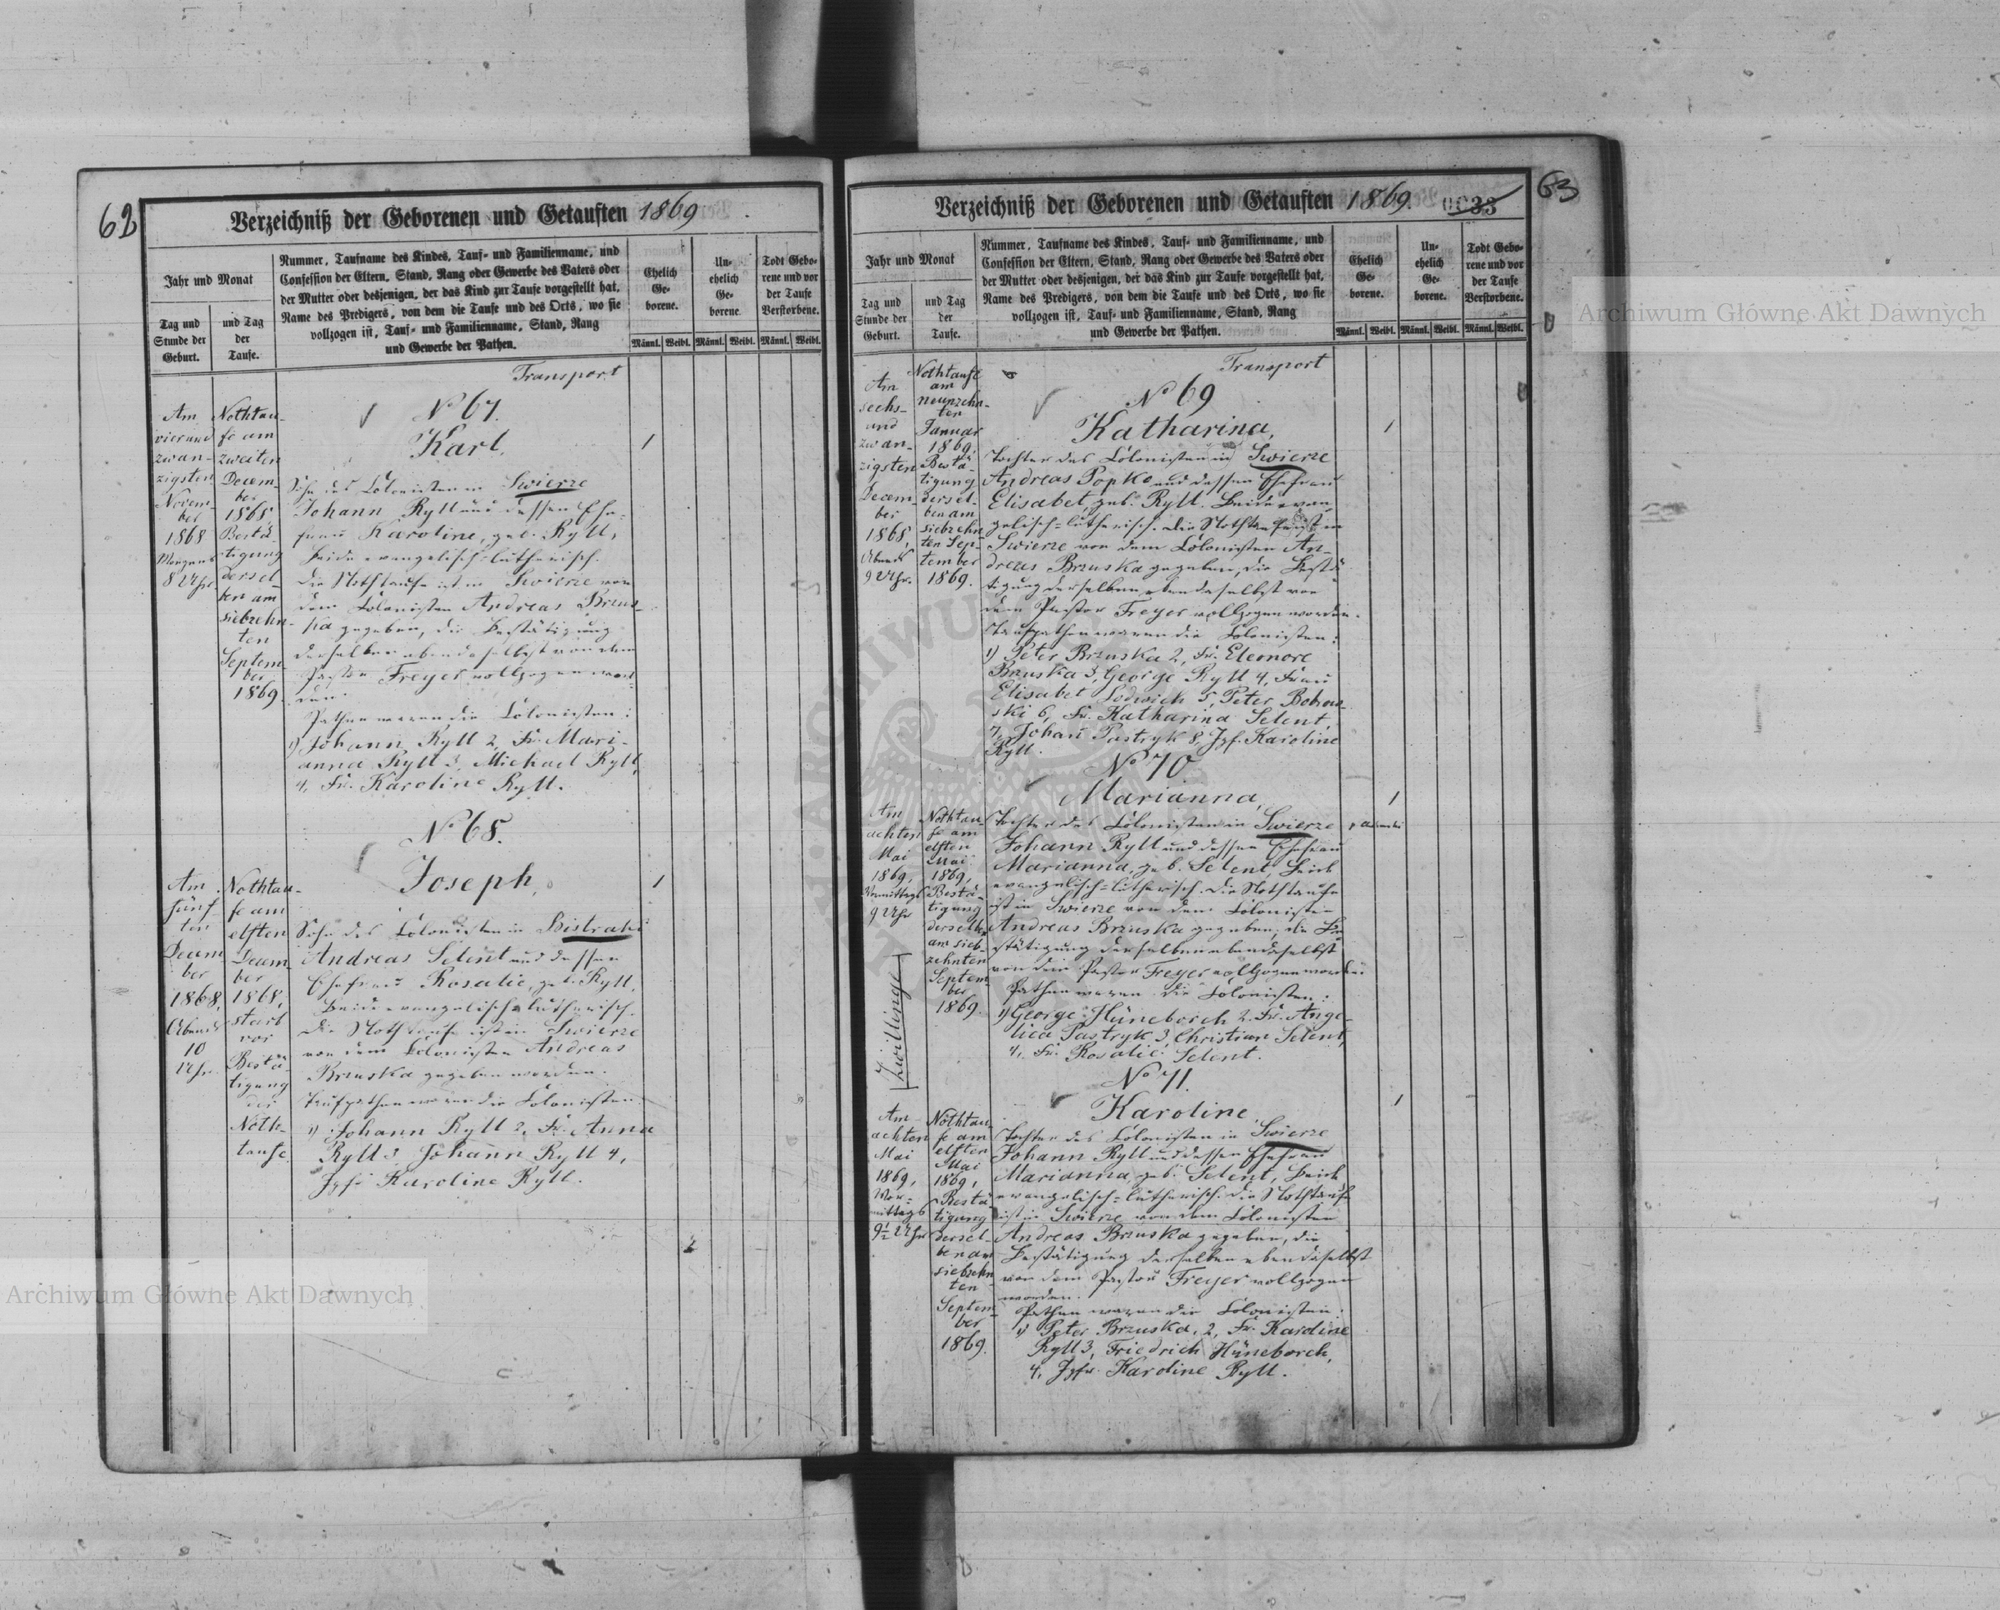 62
Verzeichniß der Geborenen und Getauften 1869.
Jahr und Monat
Tag und
Stunde der
Geburt.
und Tag
der
Taufe.
Nummer, Taufname des Kindes, Tauf- und Familienname, und
Confession der Eltern, Stand, Rang oder Gewerbe des Vaters oder
der Mutter oder desjenigen, der das Kind zur Taufe vorgestellt hat,
Name des Predigers, von dem die Taufe und des Orts, wo sie
vollzogen ist, Tauf- und Familienname, Stand, Rang
und Gewerbe der Pathen.
Ehelich
Ge-
borene.
Un-
ehelich
Ge-
borene.
Todt Gebo-
rene und vor
der Taufe
Verstorbene.
Männl. Weibl. Männl. Weibl. Männl. Weibl.
Transport
Am
vierund
zwan-
zigsten
Novem-
ber
1868
Morgens
8 Uhr.
Nothtau-
fe am
zweiten
Decem-
ber
1868
Bestä-
tigung
dersel-
ben am
siebzehn-
ten
Septem-
ber
1869.
No 67.
Karl,
1
Sohn des Colonisten in Swierze
Johann Ryll und dessen Ehe-
frau Karoline, geb. Ryll,
Beide evangelisch-lutherisch.
Die Nothtaufe ist in Swierze von
dem Colonisten Andreas Brzus-
ka gegeben, die Bestätigung
derselben ebendaselbst von dem
Pastor Freyer vollzogen wor-
den.
Pathen waren die Colonisten:
1) Johann Ryll 2, Fr. Mari-
anna Ryll 3, Michael Ryll,
4, Fr. Karoline Ryll.
Am
fünf
ten
Decem
ber
1868,
Abends
10
Uhr.
Nothtau-
fe am
elften
Decem-
ber
1868,
starb
vor
Bestä-
tigung
der
Noth-
taufe.
No 68.
Joseph,
1
Sohn des Colonisten in Bistraki
Andreas Selent und dessen
Ehefrau Rosalie, geb. Ryll,
Beide evangelisch-lutherisch.
Die Nothtaufe ist in Swierze
von dem Colonisten Andreas
Brzuska gegeben worden.
Taufpathen waren die Colonisten:
1) Johann Ryll 2, Fr. Anna
Ryll 3, Johann Ryll 4,
Jgfr. Karoline Ryll.
2
63
Verzeichniß der Geborenen und Getauften 1869.
0033
Jahr und Monat
Tag und
Stunde der
Geburt.
und Tag
der
Taufe.
Nummer, Taufname des Kindes, Tauf- und Familienname, und
Confession der Eltern, Stand, Rang oder Gewerbe des Vaters oder
der Mutter oder desjenigen, der das Kind zur Taufe vorgestellt hat,
Name des Predigers, von dem die Taufe und des Orts, wo sie
vollzogen ist, Tauf- und Familienname, Stand, Rang
und Gewerbe der Pathen.
Ehelich
Ge-
borene.
Un-
ehelich
Ge-
borene.
Todt Gebo-
rene und vor
der Taufe
Verstorbene.
Männl. Weibl. Männl. Weibl. Männl. Weibl.
Transport
Am
sechs-
und
zwan-
zigsten
Decem-
ber
1868,
Abends
9 Uhr.
Nothtaufe
am
neunzehn-
ten
Januar
1869,
Bestä-
tigung
dersel-
ben am
siebzehn-
ten Sep-
tember
1869.
No 69
Katharina,
1
Tochter des Colonisten in Swierze
Andreas Popko und dessen Ehefrau
Elisabet, geb. Ryll. Beide evan-
gelisch-lutherisch. Die Nothtaufe ist in
Swierze von dem Colonisten An-
dreas Brzuska gegeben, die Bestä-
tigung derselben ebendaselbst von
dem Pastor Freyer vollzogen worden.
Taufpathen waren die Colonisten:
1) Peter Brzuska 2, Fr. Eleonore
Brzuska 3, George Ryll 4, Frau
Elisabet Lodwich 5, Peter
6, Fr. Katharina Selent,
7, Johann Pastryk 8, Jgf. Karoline
Ryll.
Am
achten
Mai
1869,
Vormittags
9 Uhr
Nothtau-
fe am
elften
Mai
1869,
Bestä-
tigung
derselben
am sieb-
zehnten
Septem-
ber
1869.
No 70.
Marianna,
1
Tochter des Colonisten in Swierze
Johann Ryll und dessen Ehefrau
Marianna, geb. Selent, Beide
evangelisch-lutherisch. Die Nothtaufe
ist in Swierze von dem Colonisten
Andreas Brzuska gegeben, die Be-
stätigung derselben ebendaselbst
von dem Pastor Freyer vollzogen worden.
Pathen waren die Colonisten:
1) George Hüneborch 2. Fr. Ange-
lica Pastryk 3, Christian Selent,
4, Fr. Rosalie Selent.
Zwillinge
Am
achten
Mai
1869,
Vor-
mittags
9½ Uhr
Nothtau-
fe am
elften
Mai
1869,
Bestä-
tigung
dersel-
ben am
siebzehn
ten
Septem-
ber
1869.
No 71.
Karoline,
1
Tochter des Colonisten in Swierze
Johann Ryll und dessen Ehefrau
Marianna, geb. Selent, Beide
evangelisch-lutherisch. Die Nothtaufe
ist in Swierze von dem Colonisten
Andreas Brzuska gegeben, die
Bestätigung derselben ebendaselbst
von dem Pastor Freyer vollzogen
worden.
Pathen waren die Colonisten:
1) Peter Brzuska, 2, Fr. Karoline
Ryll 3, Friedrich Hüneborch,
4, Jgfr. Karoline Ryll.
Archiwum Główne Akt Dawnych
Archiwum Główne Akt Dawnych